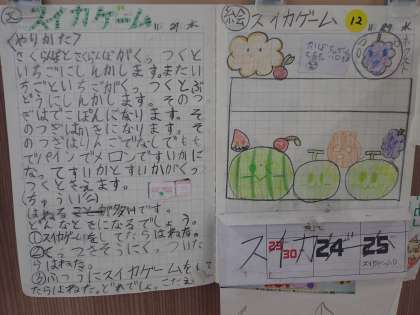 文 スイカゲーム
11 29 水
〈やりかた〉
さくらんぼとさくらんぼがくっつくと
いちごにしんかします。またい
ちごといちごがくっつくとぶ
どうにしんかします。そのつ
ぎはでこぽんになります。そ
のつぎはかきになります。そ
のつぎはりんごでなしでもも
でパインでメロンですいかに
なってすいかとすいかがくっ
つくときえます。
(ちゅうい)
はねる が多いです。
どんなときになるでしょう。
①スイカゲームをしてたらはねた。
らはねた。
③ふつうにスイカゲームをし
たらはねた。どれでしょ。こたえ
絵 スイカゲーム
12
11 29 水
スイカゲーム
23
30
24
25
スイカゲーム